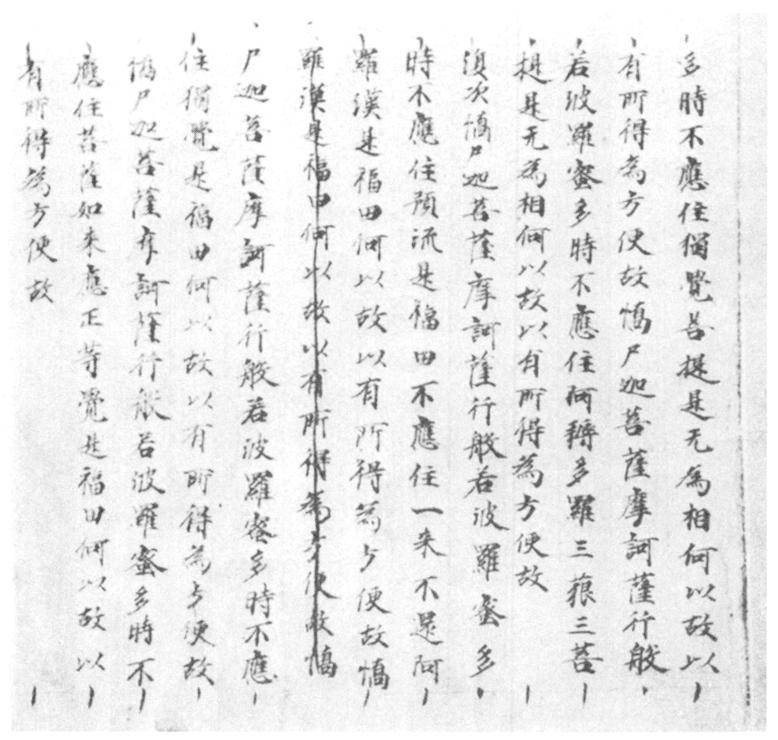 多時不應住獨覺菩提是无為相何以故以
有所得為方便故憍尸迦菩薩摩訶薩行般
若波羅蜜多時不應住阿耨多羅三藐三菩
提是无為相何以故以有所得為方便故
復次憍尸迦菩薩摩訶薩行般若波羅蜜多
時不應住預流是福田不應住一来不還阿
羅漢是福田何以故以有所得為方便故憍
羅漢是福田何以故以有所得為方便故憍
尸迦菩薩摩訶薩行般若波羅蜜多時不應
住獨覺是福田何以故以有所得為方便故
憍尸迦菩薩摩訶薩行般若波羅蜜多時不
應住菩薩如来應正等覺是福田何以故以
有所得為方便故